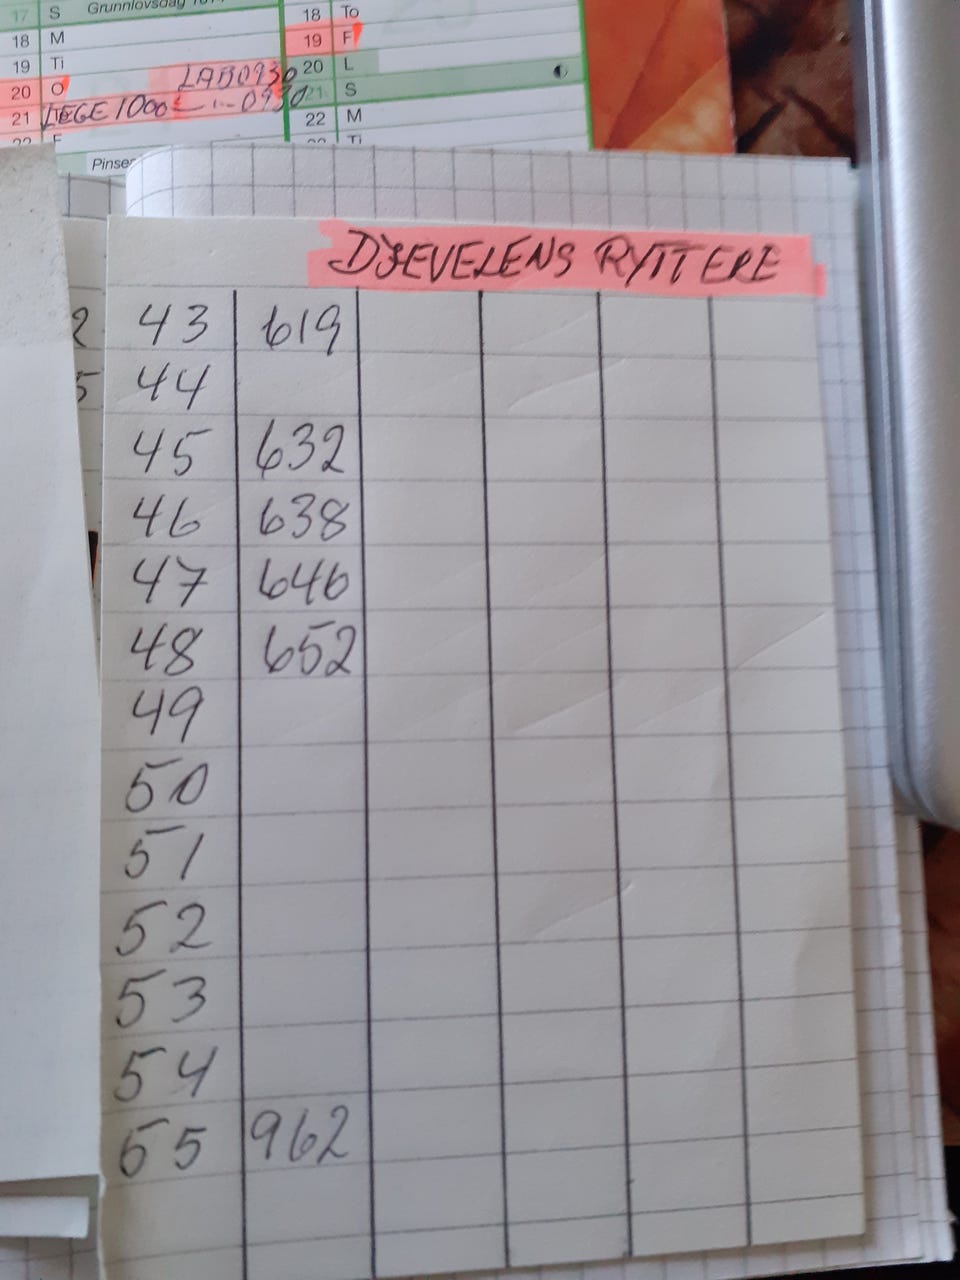 17 S Grunnlovsdag
18 M
19 Ti
20 O LAB 0930
21 LEGE 1000 0930
18 To
19 F
20 L
21 S
22 M
Ti
Pinse
DJEVELENS RYTTERE
2 43 619
5 44
45 632
46 638
47 646
48 652
49
50
51
52
53
54
55 962